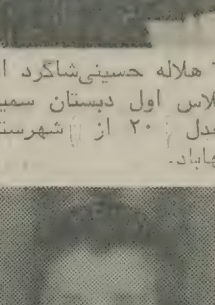 هلاله حسینی شاگرد ا
لاس اول دبستان سمی
دل ۲۰ از شهرست
هاباد.